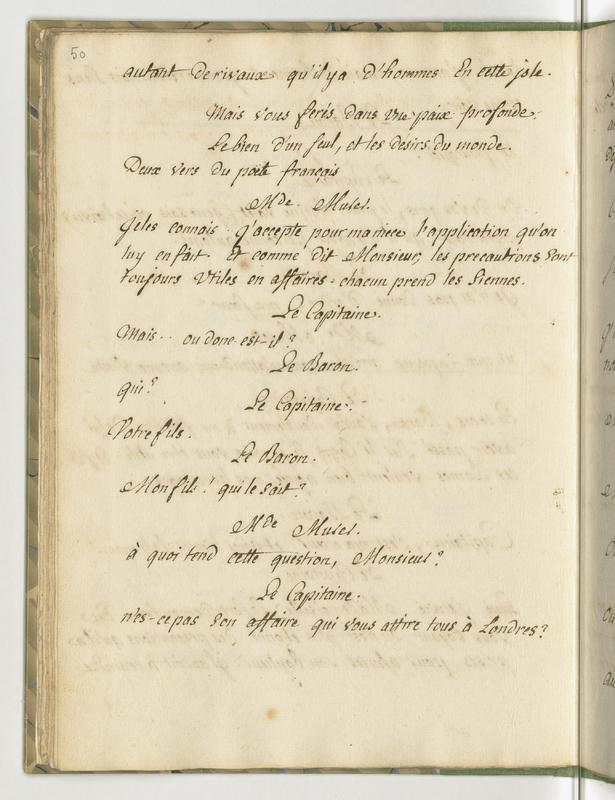 50
autant de rivaux qu'il y a d'hommes En cette isle.
Mais vous ferés dans une paix profonde,
Le bien d'un seul, et les desirs du monde.
Deux vers du poete français
Mde. Muser.
Je les connais. j'accepte pour ma niece l'application qu'on
luy en fait. et comme dit Monsieur, les precautions sont
toujours utiles en affaires. chacun prend les siennes.
Le Capitaine.
Mais.. ou donc est-il?
Le Baron.
qui?
Le Capitaine.
Votre fils.
Le Baron.
Mon fils! qui le sait?
Mde Muser.
à quoi tend cette question, Monsieur?
Le Capitaine.
n'es-ce pas son affaire qui vous attire tous à Londres?